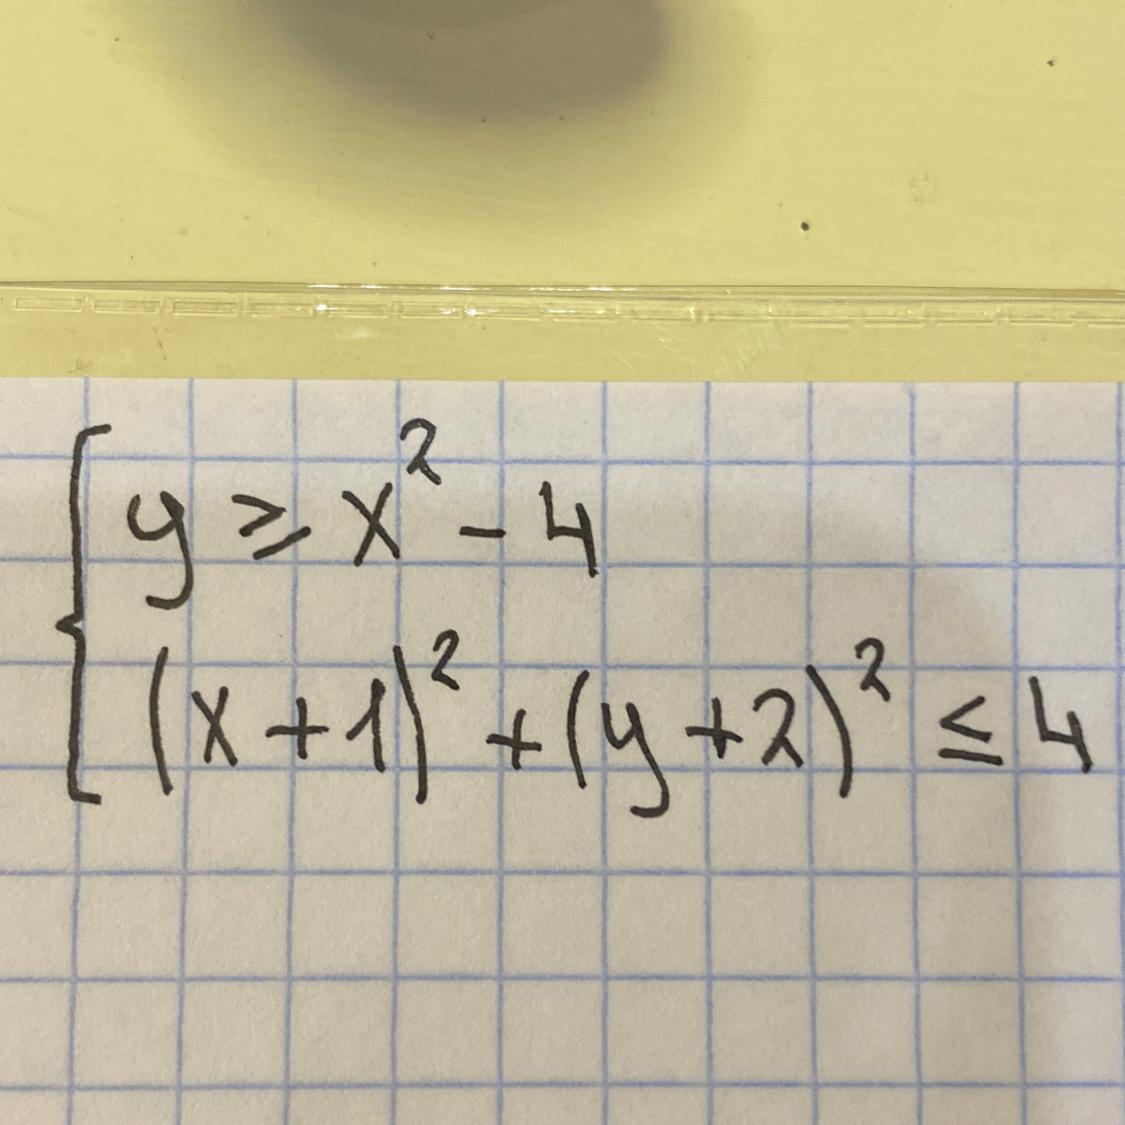 y ⩾ x² - 4
(x + 1)² + (y + 2)² ≤ 4